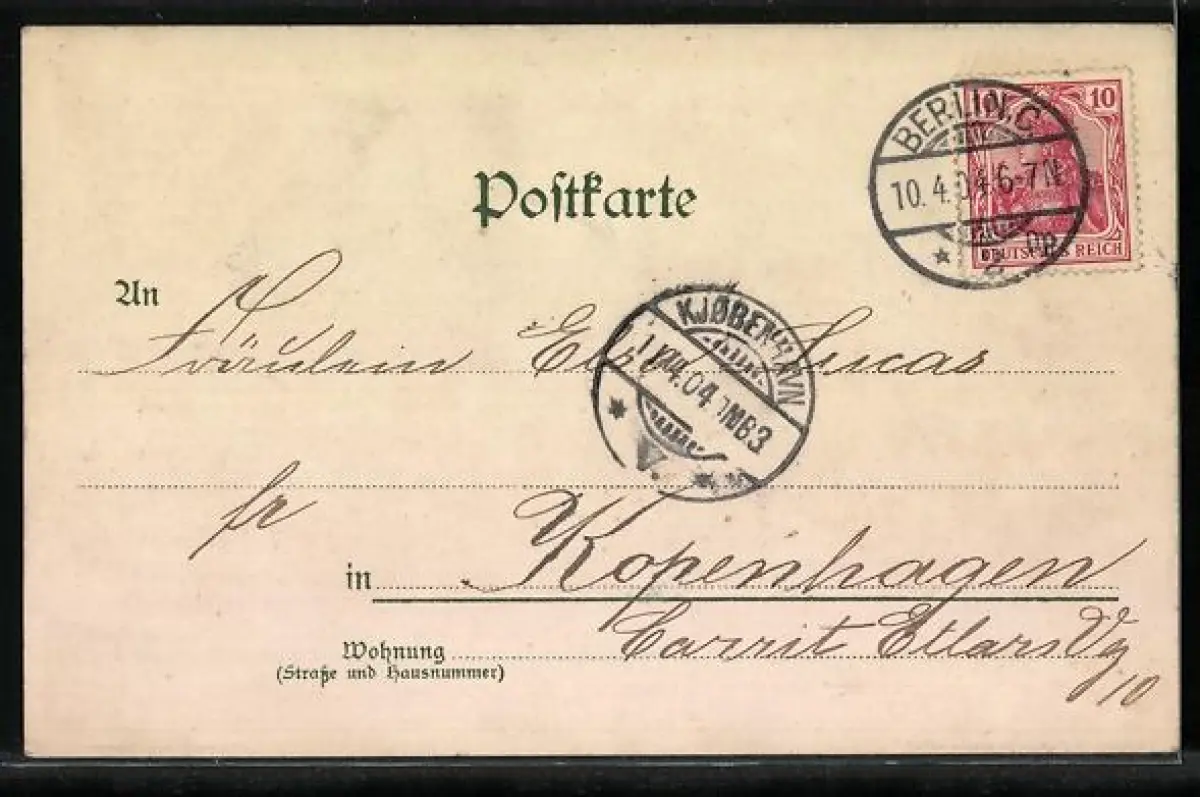 BERLIN. C.
10. 4. 04. 6-7 N
10
DEUTSCHES REICH
Postkarte
An
Fräulein Lucas
KJØBENHAVN
4.04
fr
in Kopenhagen
Wohnung Carrit Etlars Vg
(Straße und Hausnummer)
10